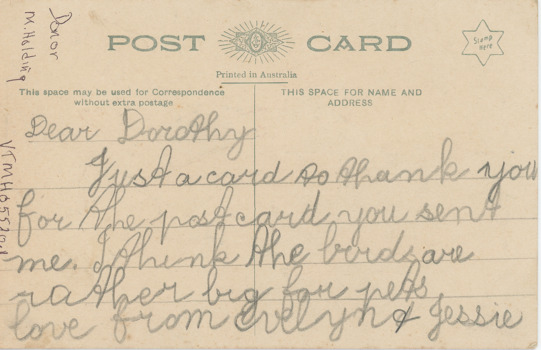 POST CARD
Stamp
Here
Printed in Australia
This space may be used for Correspondence
without extra postage
THIS SPACE FOR NAME AND
ADDRESS
Dear Dorothy
Just a card to thank you
for the postcard you sent
me. I think the birds are
rather big for pets
love from Evelyn & Jessie
Donor
M. Holding